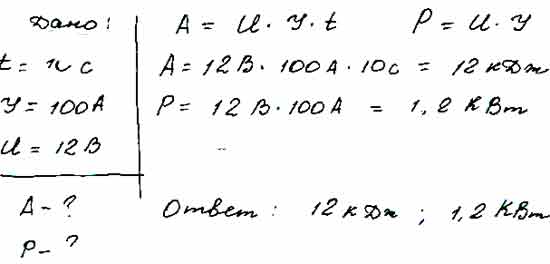 Дано:
t = 10 с
У = 100 А
U = 12 В
А - ?
Р - ?
А = U · У · t Р = U · У
А = 12 В · 100 А · 10 с = 12 кДж
Р = 12 В · 100 А = 1,2 кВт
Ответ: 12 кДж; 1,2 кВт